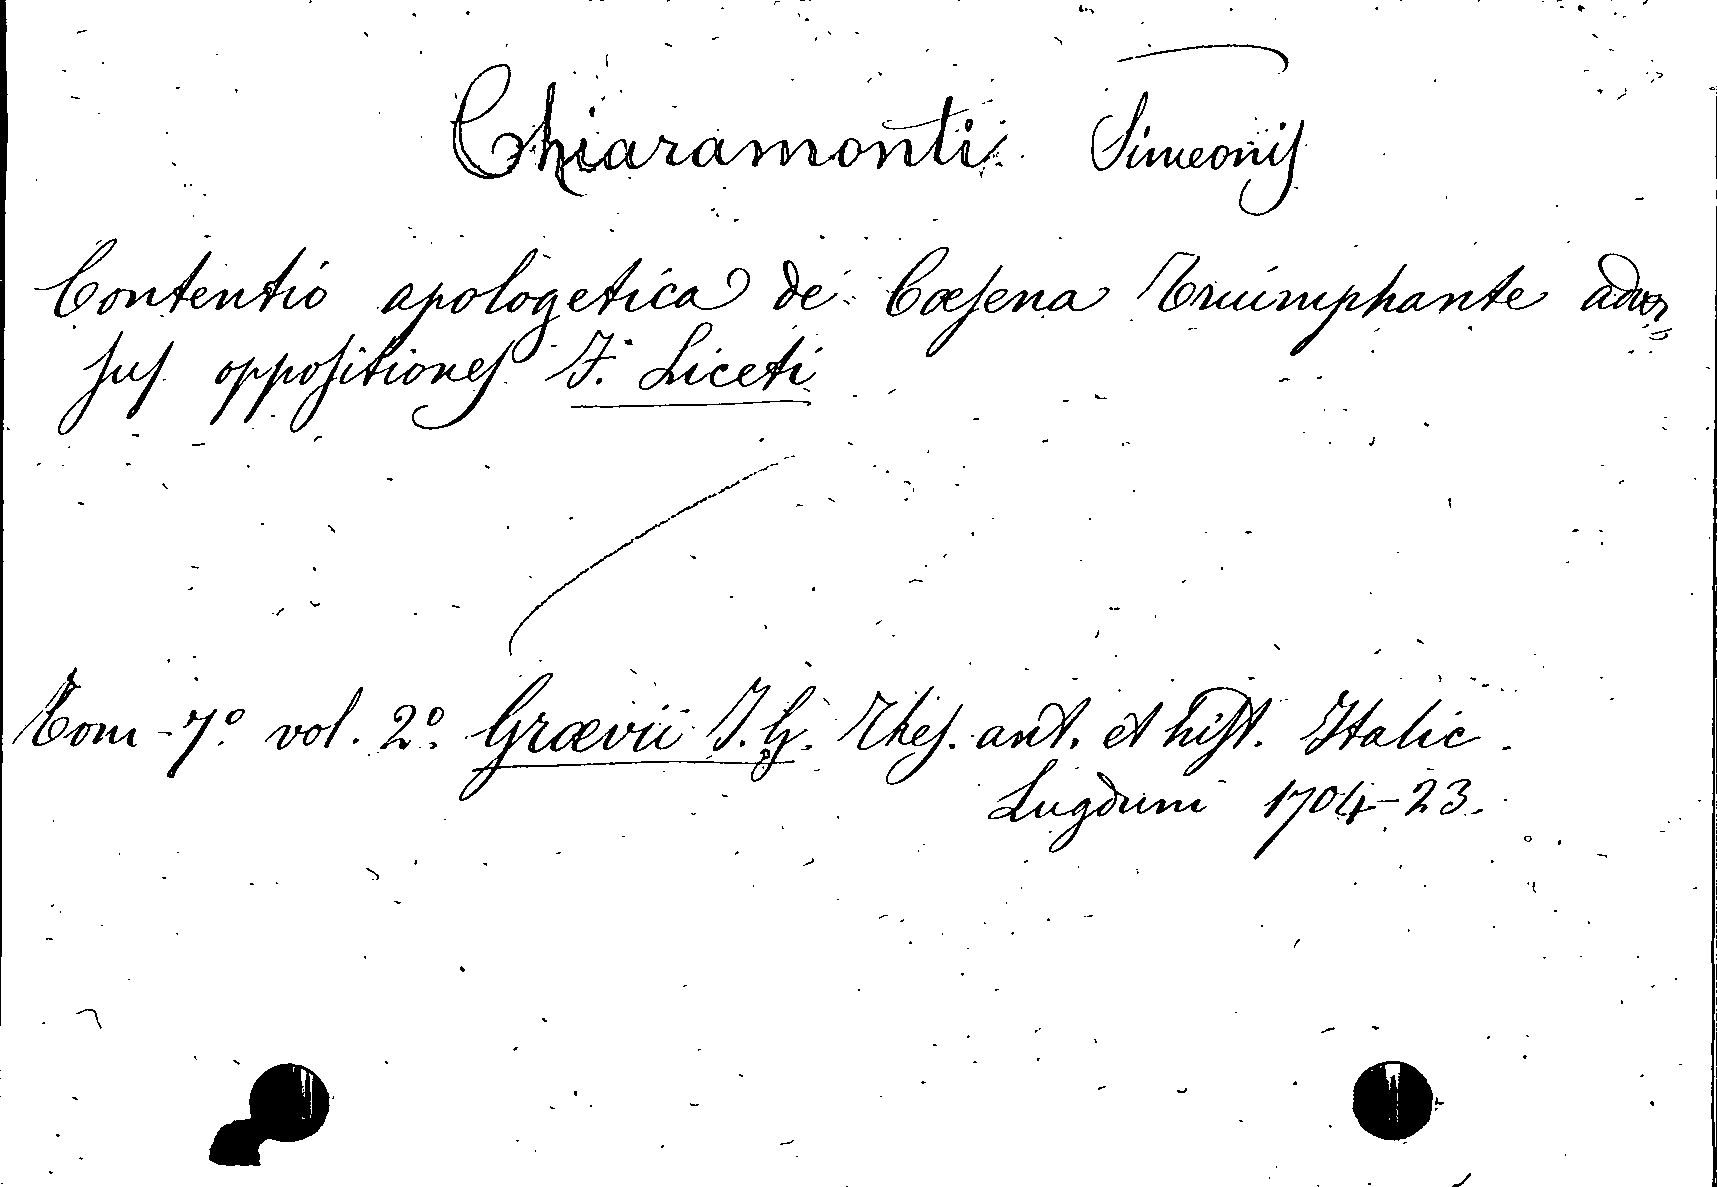 Chiaramonti Simeonis
Contentio apologetica de Cæsena Triumphante adver=
sus oppositiones F. Liceti
Tom - 7º vol. 2º Grævii J. G. Thes. ant. et hist. Italic.
Lugduni 1704-23.